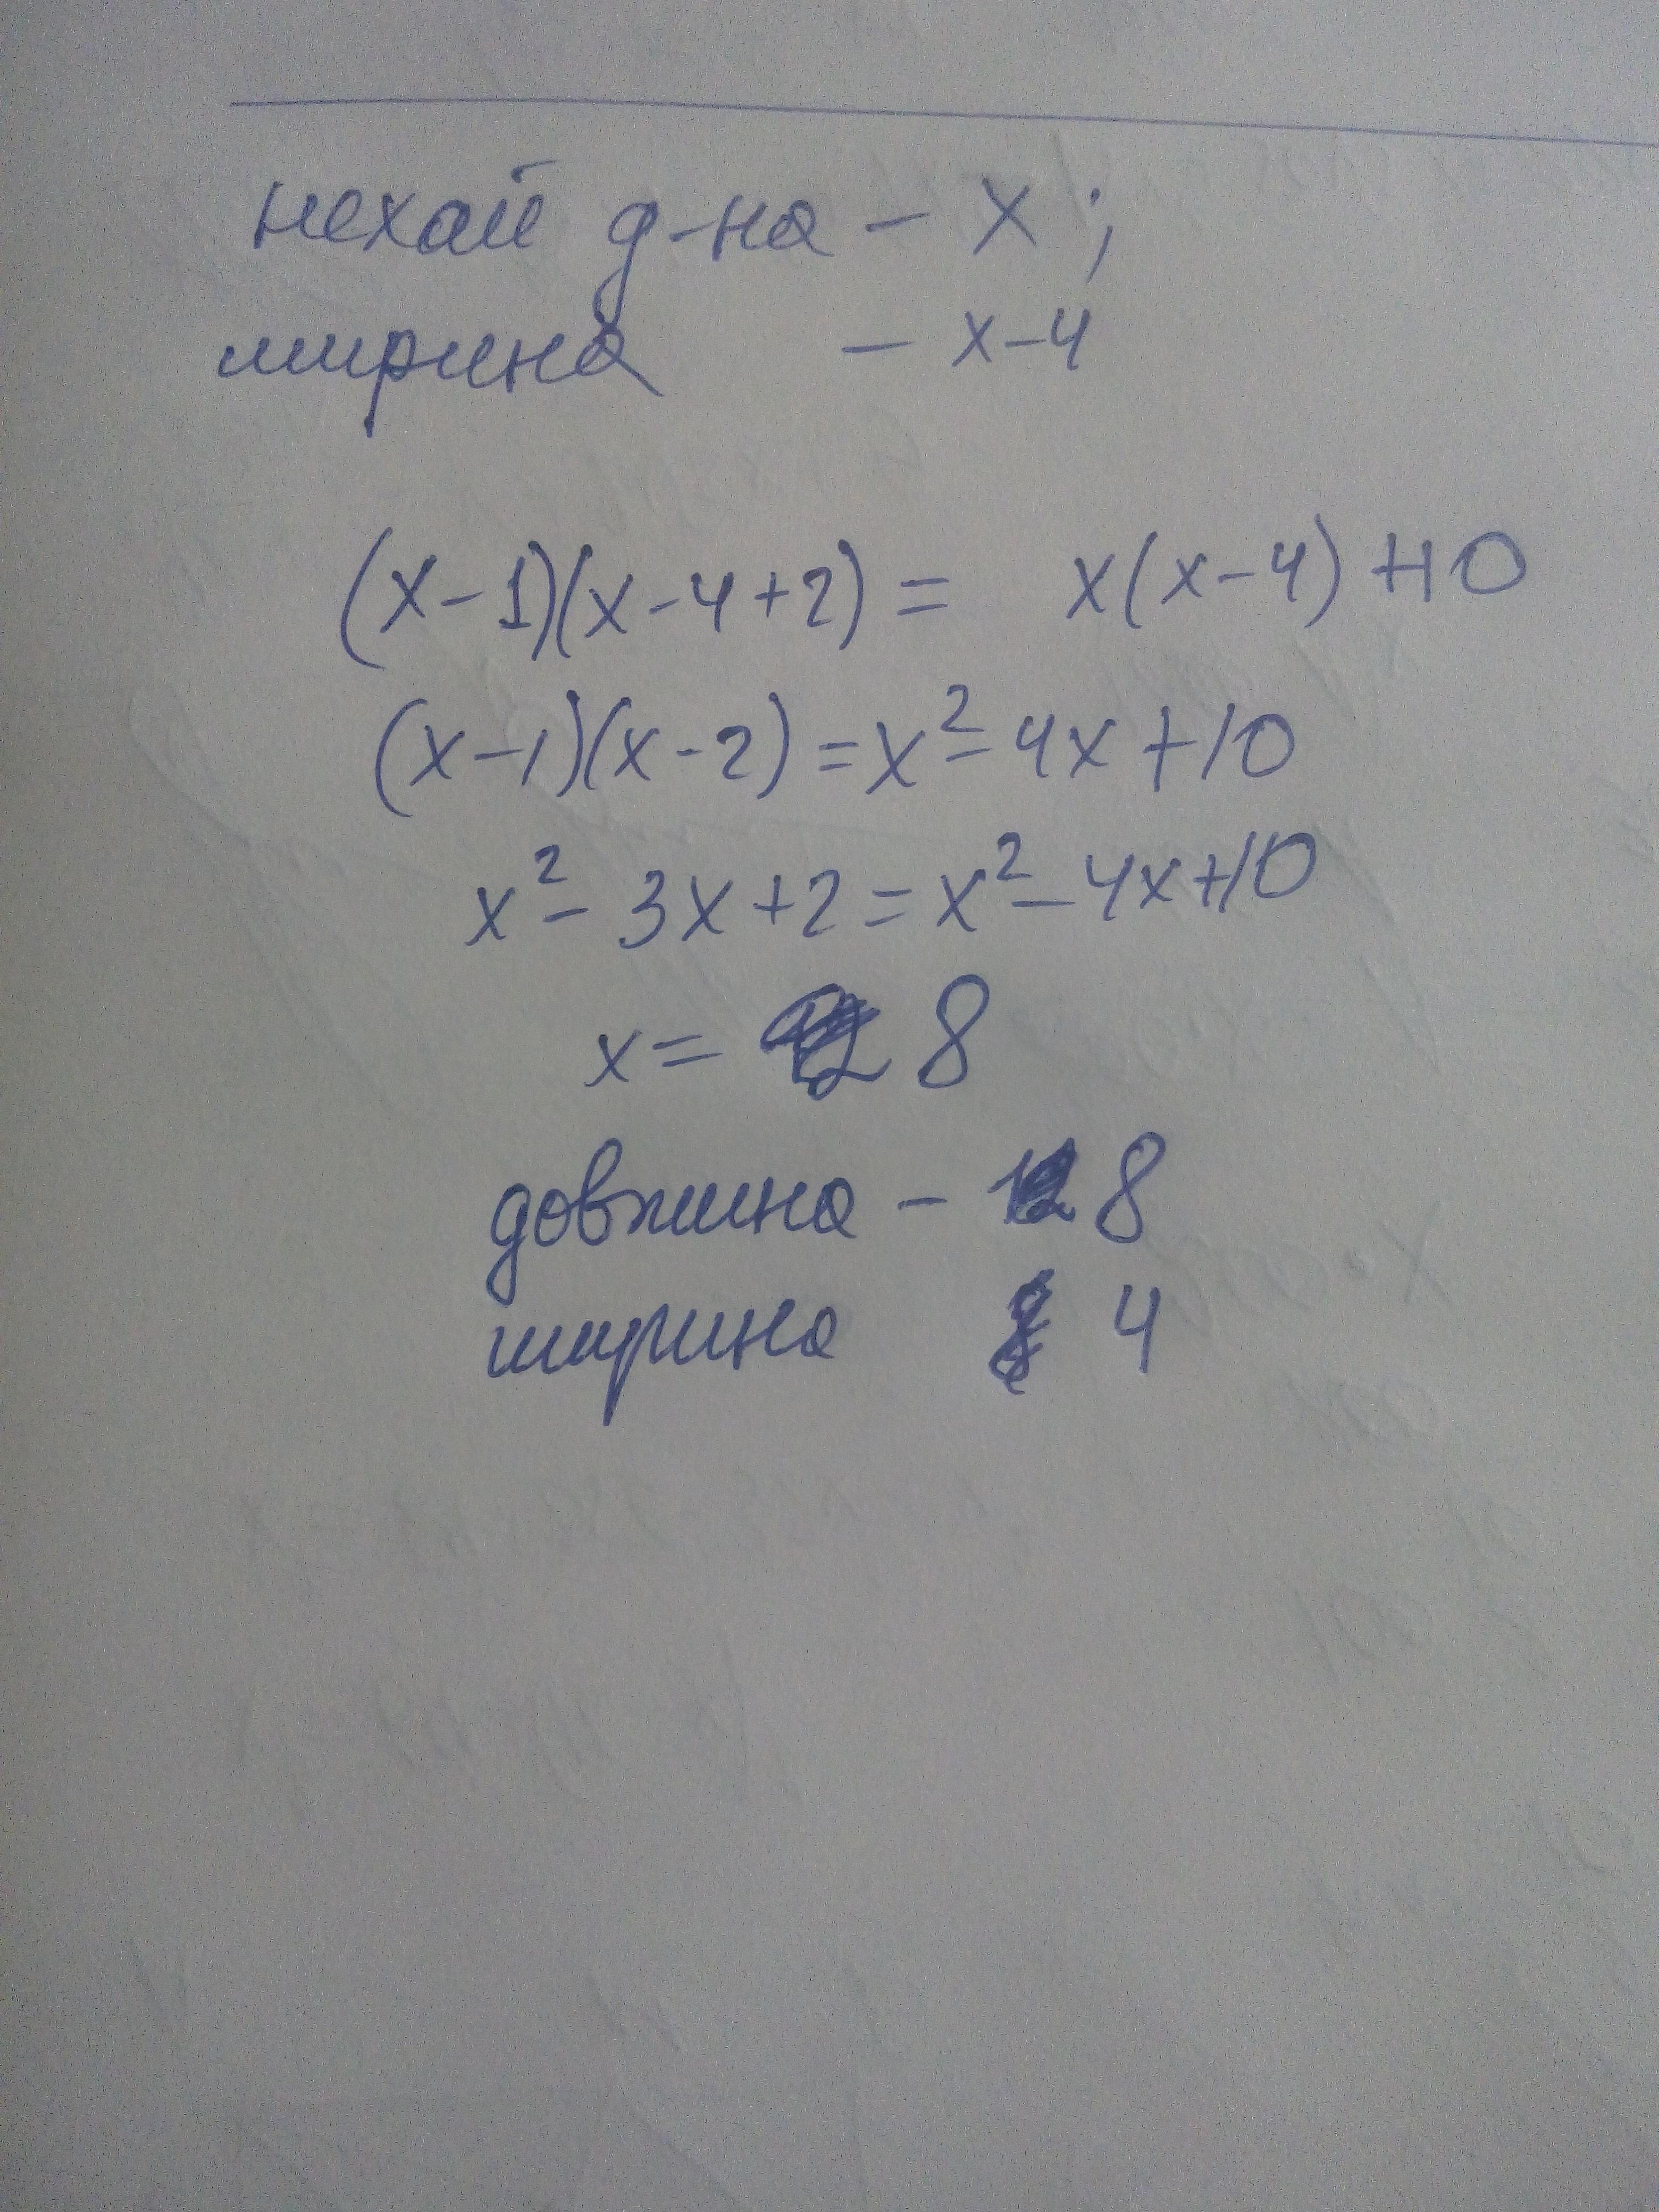 нехай д-на - x;
ширина - x-4
(x-1)(x-4+2) = x(x-4)+10
(x-1)(x-2) = x²-4x+10
x²-3x+2 = x²-4x+10
x = 8
довжина - 8
ширина 4